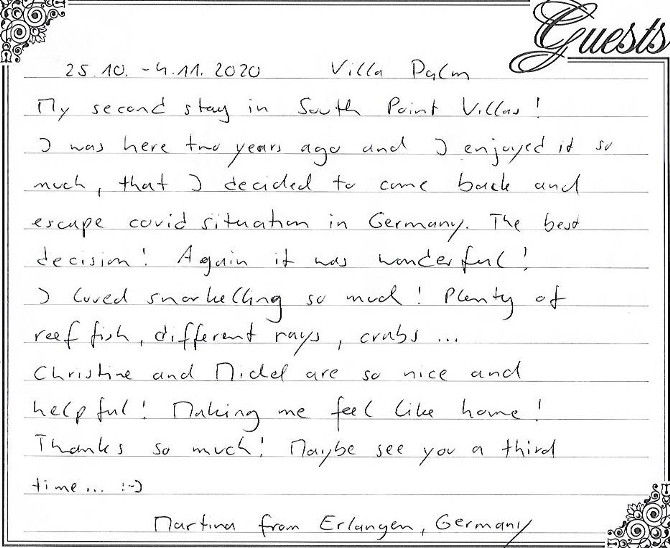 Guests
25.10. - 4.11. 2020 Villa Palm
My second stay in South Point Villas!
I was here two years ago and I enjoyed it so
much, that I decided to come back and
escape covid situation in Germany. The best
decision! Again it was wonderful!
I loved snorkelling so much! Plenty of
reef fish, different rays, crabs ...
Christine and Michel are so nice and
helpful! Making me feel like home!
Thanks so much! Maybe see you a third
time... :-)
Martina from Erlangen, Germany